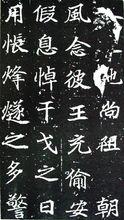 地尚阻朝
風念彼王充偷安
假息悼干戈之日
用悵烽燧之多警